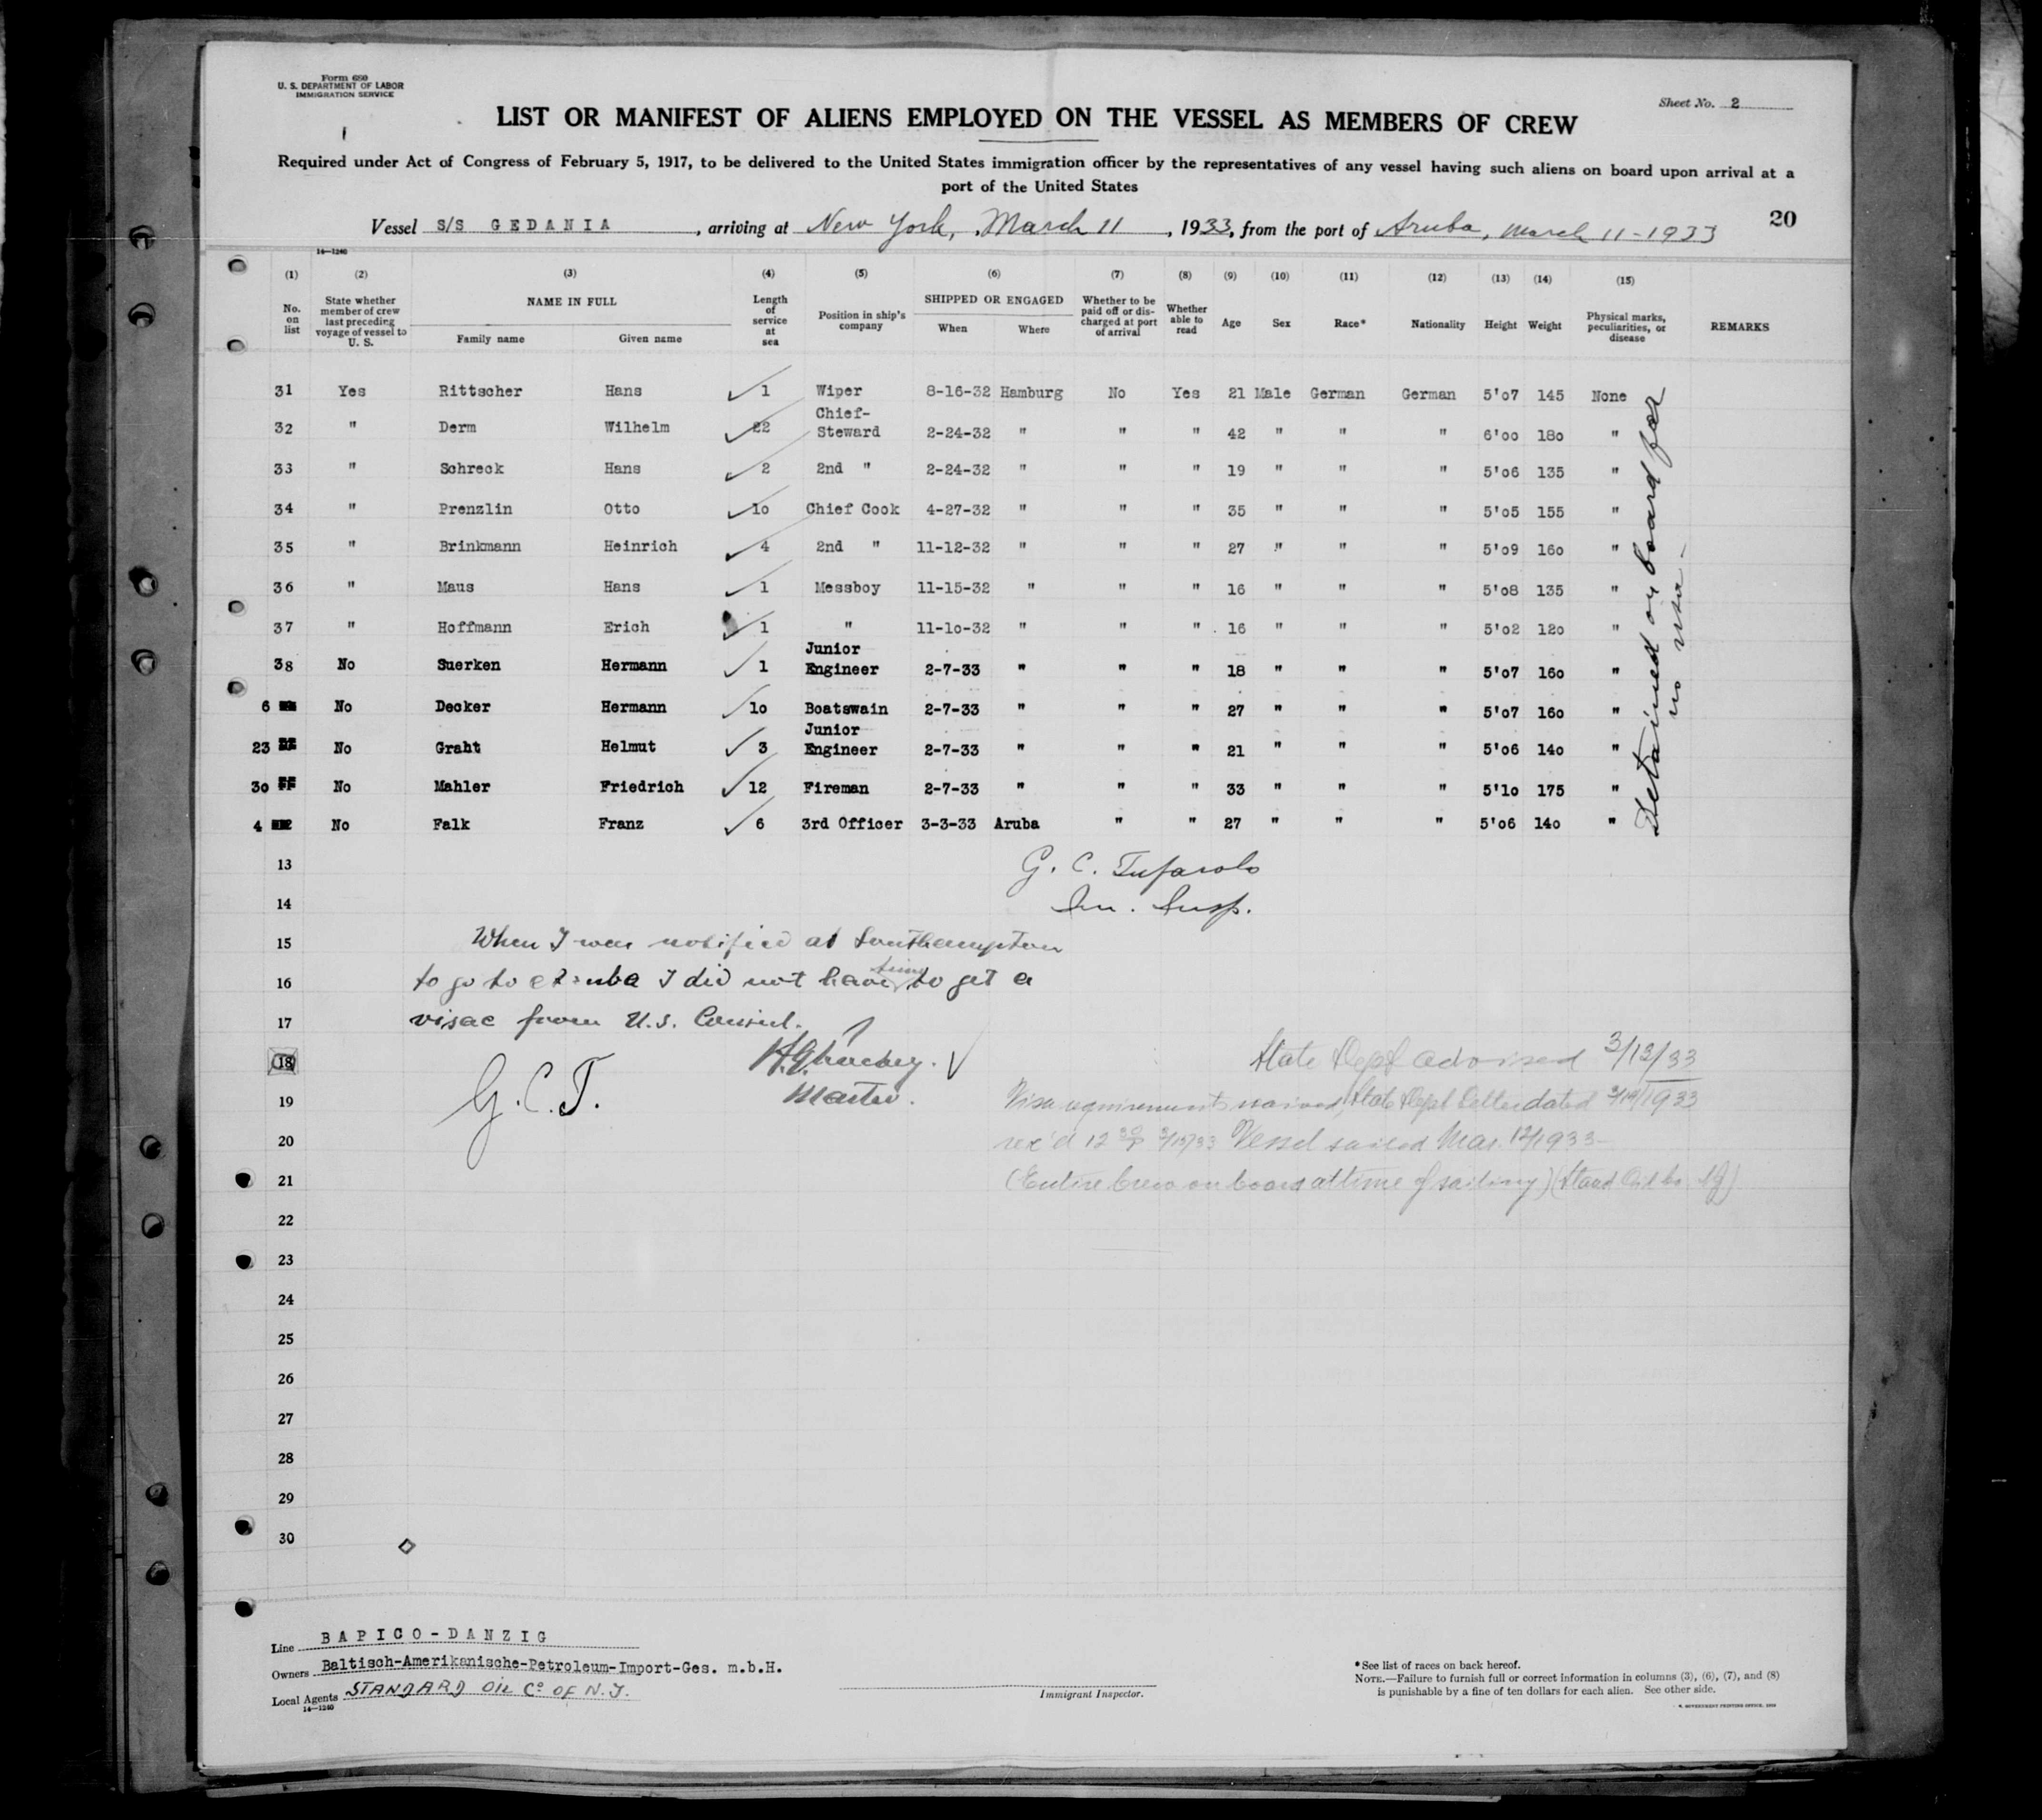 Form 680
U. S. DEPARTMENT OF LABOR
IMMIGRATION SERVICE
Sheet No. 2
LIST OR MANIFEST OF ALIENS EMPLOYED ON THE VESSEL AS MEMBERS OF CREW
Required under Act of Congress of February 5, 1917, to be delivered to the United States immigration officer by the representatives of any vessel having such aliens on board upon arrival at a
port of the United States
20
Vessel S/S GEDANIA, arriving at New York, March 11, 1933, from the port of Aruba, March 11-1933
14—1240
(1) (2) (3) (4) (5) (6) (7) (8) (9) (10) (11) (12) (13) (14) (15)
No. on list State whether member of crew last preceding voyage of vessel to U. S. NAME IN FULL Family name Given name Length of service at sea Position in ship's company SHIPPED OR ENGAGED When Where Whether to be paid off or discharged at port of arrival Whether able to read Age Sex Race* Nationality Height Weight Physical marks, peculiarities, or disease REMARKS
31 Yes Rittscher Hans 1 Wiper 8-16-32 Hamburg No Yes 21 Male German German 5'07 145 None
32 " Derm Wilhelm 22 Chief-Steward 2-24-32 " " " 42 " " " 6'00 180 "
33 " Schreck Hans 2 2nd " 2-24-32 " " " 19 " " " 5'06 135 "
34 " Prenzlin Otto 10 Chief Cook 4-27-32 " " " 35 " " " 5'05 155 "
35 " Brinkmann Heinrich 4 2nd " 11-12-32 " " " 27 " " " 5'09 160 "
36 " Maus Hans 1 Messboy 11-15-32 " " " 16 " " " 5'08 135 "
37 " Hoffmann Erich 1 " 11-10-32 " " " 16 " " " 5'02 120 "
38 No Suerken Hermann 1 Junior Engineer 2-7-33 " " " 18 " " " 5'07 160 "
6 No Decker Hermann 10 Boatswain 2-7-33 " " " 27 " " " 5'07 160 "
23 No Graht Helmut 3 Junior Engineer 2-7-33 " " " 21 " " " 5'06 140 "
30 No Mahler Friedrich 12 Fireman 2-7-33 " " " 33 " " " 5'10 175 "
4 No Falk Franz 6 3rd Officer 3-3-33 Aruba " " 27 " " " 5'06 140 "
Detained on board for
no visa -
13 G. C. Tufarolo
14 Im. Insp.
15 When I was notified at Southampton
16 to go to Aruba I did not have time to get a
17 visae from U.S. Consul.
18 Master.
G.C.T.
State Dept advised 3/13/33
19 Visa requirements waived, State Dept Letter dated 1933
20 rec'd 12 Vessel sailed Mar. 12/1933-
21 (Entire Crew on board at time of sailing) (Stand Oil Co. NJ)
22
23
24
25
26
27
28
29
30
Line BAPICO-DANZIG
Owners Baltisch-Amerikanische-Petroleum-Import-Ges. m.b.H.
Local Agents STANDARD OIL Co OF N.J.
14—1240
Immigrant Inspector.
*See list of races on back hereof.
NOTE.—Failure to furnish full or correct information in columns (3), (6), (7), and (8)
is punishable by a fine of ten dollars for each alien. See other side.